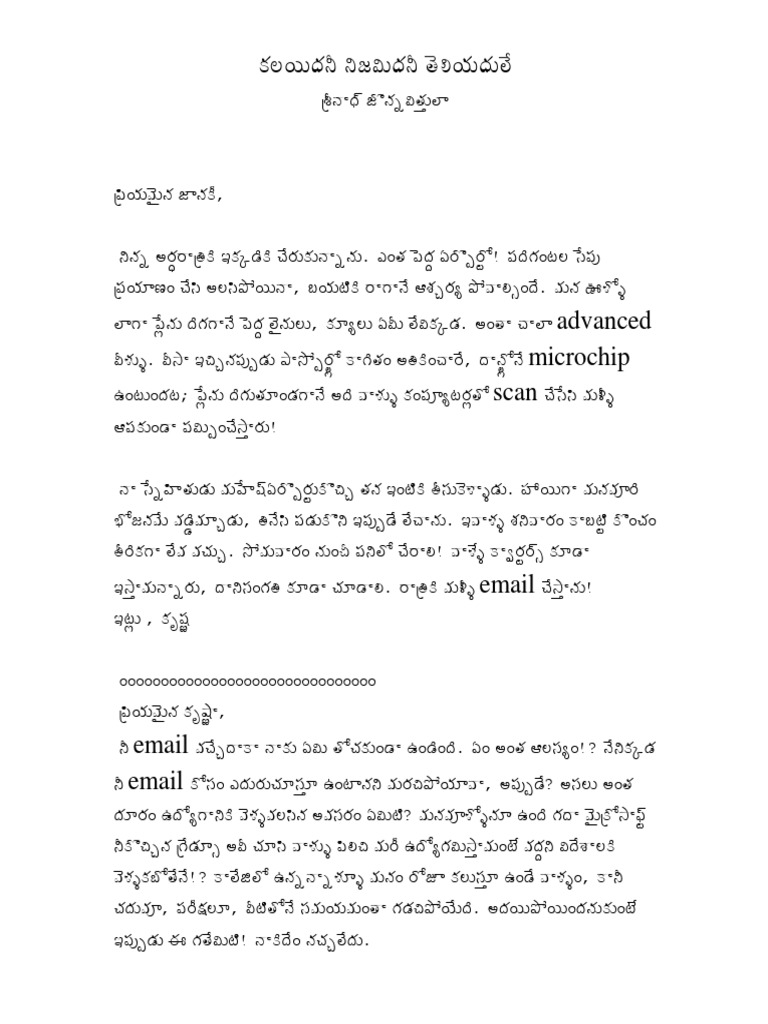 కలయిదనీ నిజమిదనీ తెలియదులే
శ్రీనాధ్ జొన్నవిత్తులా
ప్రియమైన జానకీ,
నిన్న అర్ధరాత్రికి ఇక్కడికి చేరుకున్నాను. ఎంత పెద్ద ఏర్పొర్టో! పదిగంటల సేపు
ప్రయాణం చేసి అలసిపోయినా, బయటికి రాగానే ఆశ్చర్య పోవాల్సిందే. మన ఊళ్ళో
లాగా ప్లేను దిగగానే పెద్ద లైనులు, క్యూలు ఏమీ లేవిక్కడ. అంతా చాలా advanced
వీళ్ళు. వీసా ఇచ్చినప్పుడు పాస్పోర్ట్లో కాగితం అతికించారే, దాన్ట్లోనే microchip
ఉంటుందట; ప్లేను దిగుతూండగానే అది వాళ్ళు కంప్యూటర్లతో scan చేసేసి మళ్ళీ
ఆపకుండా పమ్పించేస్తారు!
నా స్నేహితుడు మహేష్ఏర్పొర్టుకొచ్చి తన ఇంటికి తీసుకెళాళ్డు. హాయిగా మనవూరి
భోజనమే వడ్డిమ్చాడు, తినేసి పడుకొని ఇప్పుడే లేచాను. ఇవాళ్ళ శనివారం కాబట్టి కొంచం
తీరికగా లేవ వచ్చు. సోమవారం నుంచీ పనిలో చేరాలి! వాళ్ళే క్వార్టర్స్ కూడా
ఇస్తామన్నారు, దానిసంగతి కూడా చూడాలి. రాత్రికి మళ్ళీ email చేస్తాను!
ఇట్లు , కృష్ణ
oooooooooooooooooooooooooooooooo
ప్రియమైన కృష్ణా,
నీ email వచ్చేదాకా నాకు ఏమి తోచకుండా ఉండింది. ఏం అంత ఆలస్యం!? నేనిక్కడ
నీ email కోసం ఎదురుచూస్తూ ఉంటానని మరచిపోయావా, అప్పుడే? అసలు అంత
దూరం ఉద్యోగానికి వెళ్ళవలసిన అవసరం ఏమిటి? మనవూళ్ళోనూ ఉంది గదా మైక్రోసాఫ్ట్
నీకొచ్చిన గ్రేడ్సూ అవీ చూసి వాళ్ళు పిలిచి మరీ ఉద్యోగమిస్తామంటే వద్దని విదేశాలకి
వెళ్ళకబోతేనే!? కాలేజిలో ఉన్నన్నాళ్ళూ మనం రోజూ కలుస్తూ ఉండే వాళ్ళం, కానీ
చదువూ, పరీక్షలూ, వీటితోనే సమయమంతా గడచిపోయేది. అదయిపోయిందనుకుంటే
ఇప్పుడు ఈ గతేమిటి! నాకిదేం నచ్చలేదు.